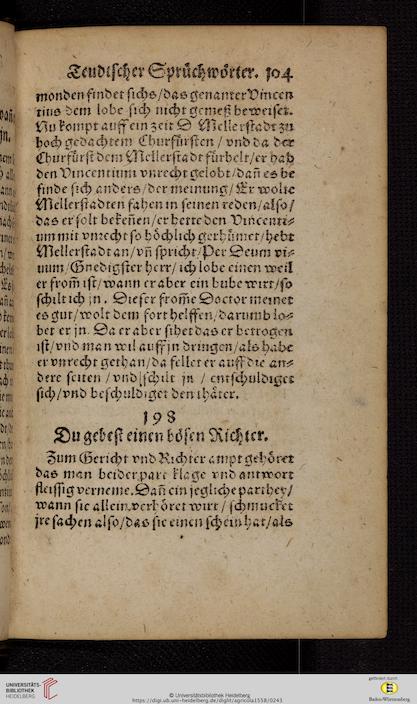 Teudtscher Sprüchwörter. 104
monden findet sichs/das genanter Vincen
tius dem lobe sich nicht gemeß beweiset.
Nu kompt auff ein zeit D Mellerstadt zu
hoch gedachtem Churfürsten / vnd da der
Churfürst dem Mellerstadt fürhelt/er hab
den Vincentium vnrecht gelobt/dañ es be
finde sich anders/der meinung/Er wolte
Mellerstadten fahen in seinen reden/also/
das er solt bekeñen/er hette den Vincenti-
um mit vnrecht so höchlich gerhümet/hebt
Mellerstadt an/vñ spricht/Per Deum vi-
uum/Gnedigster herr/ich lobe einen weil
er from̃ ist/wann er aber ein bube wirt/so
schilt ich jn. Dieser from̃e Doctor meinet
es gut/wolt dem fort helffen/darumb lo-
bet er jn. Da er aber sihet das er betrogen
ist/vnd man wil auff jn dringen/als habe
er vnrecht gethan/da fellet er auff die an-
dere seiten / vnd schilt jn / entschuldiget
sich/vnd beschuldiget den thäter.
198
Du gebest einen bösen Richter.
Zum Gericht vnd Richter ampt gehöret
das man beider part klage vnd antwort
fleissig verneme. Dañ ein jegliche parthey/
wann sie allein verhöret wirt / schmücket
jre sachen also/das sie einen schein hat/als
UNIVERSITÄTS-
BIBLIOTHEK
HEIDELBERG
© Universitätsbibliothek Heidelberg
https://digi.ub.uni-heidelberg.de/diglit/agricola1558/0243
gefördert durch
Baden-Württemberg